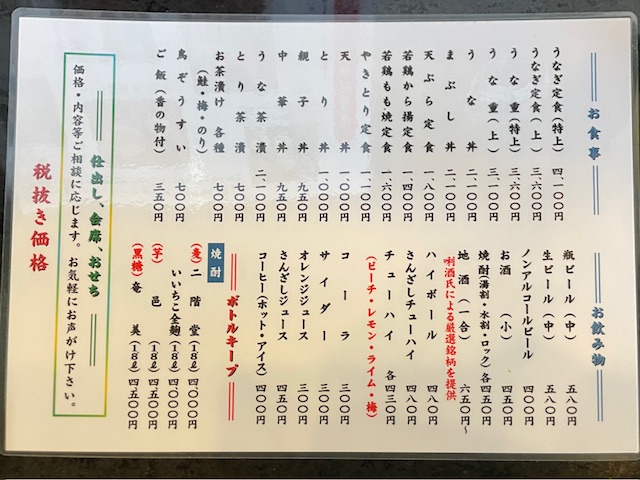 お食事
うなぎ定食(特上) 四、一〇〇円
うなぎ定食(上) 三、六〇〇円
うな重(特上) 三、六〇〇円
うな重(上) 三、一〇〇円
うな丼 二、一〇〇円
まぶし丼 二、一〇〇円
天ぷら定食 一、八〇〇円
若鶏から揚定食 一、四〇〇円
若鶏もも焼定食 一、六〇〇円
やきとり定食 一、一〇〇円
天丼 一、〇〇〇円
とり丼 一、〇〇〇円
親子丼 九五〇円
中華丼 九五〇円
うな茶漬 二、一〇〇円
とり茶漬 七〇〇円
お茶漬け各種 七〇〇円
(鮭・梅・のり)
鳥ぞうすい 七〇〇円
ご飯(香の物付) 三五〇円
お飲み物
瓶ビール(中) 五八〇円
生ビール(中) 五八〇円
ノンアルコールビール 四〇〇円
お酒(小) 四五〇円
焼酎(湯割・水割・ロック)各四五〇円
地酒(一合) 六五〇円~
唎酒氏による厳選銘柄を提供
ハイボール 四八〇円
さんざしチューハイ 四八〇円
チューハイ 各四三〇円
(ピーチ・レモン・ライム・梅)
コーラ 三〇〇円
サイダー 三〇〇円
オレンジジュース 三〇〇円
さんざしジュース 四五〇円
コーヒー(ホット・アイス) 四〇〇円
ボトルキープ
焼酎
(麦)二階堂(1.8ℓ)四、〇〇〇円
いいちこ全麹(1.8ℓ)四、〇〇〇円
(芋)邑(1.8ℓ)四、五〇〇円
(黒糖)奄美(1.8ℓ)四、五〇〇円
仕出し、会席、おせち
価格・内容等ご相談に応じます。お気軽にお声がけ下さい。
税抜き価格